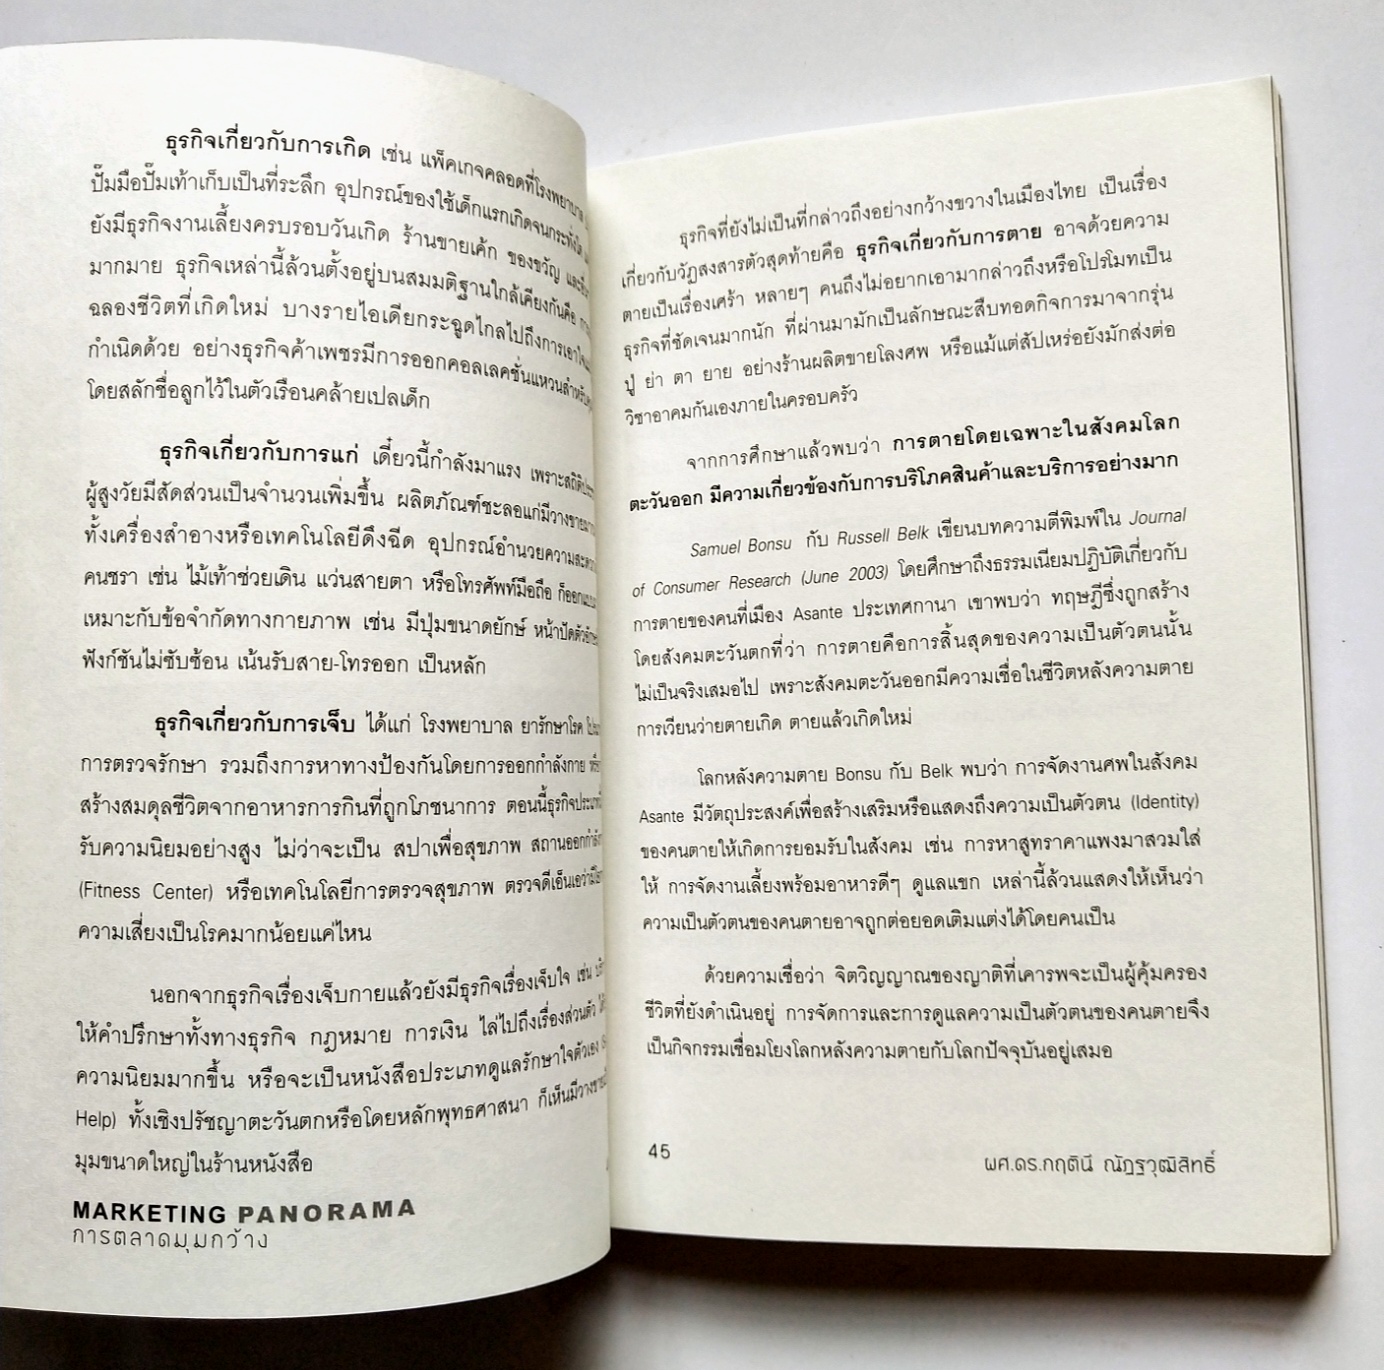 ธุรกิจเกี่ยวกับการเกิด เช่น แพ็คเกจคลอดที่โรงพยาบาล
ปั๊มมือปั๊มเท้าเก็บเป็นที่ระลึก อุปกรณ์ของใช้เด็กแรกเกิดจนกระทั่งโต
ยังมีธุรกิจงานเลี้ยงครบรอบวันเกิด ร้านขายเค้ก ของขวัญ
มากมาย ธุรกิจเหล่านี้ล้วนตั้งอยู่บนสมมติฐานใกล้เคียงกันคือ
ฉลองชีวิตที่เกิดใหม่ บางรายไอเดียกระฉูดไกลไปถึงการเอาใจ
กำเนิดด้วย อย่างธุรกิจค้าเพชรมีการออกคอลเลคชั่นแหวนสำหรับ
โดยสลักชื่อลูกไว้ในตัวเรือนคล้ายเปลเด็ก
ธุรกิจเกี่ยวกับการแก่ เดี๋ยวนี้กำลังมาแรง เพราะสถิติ
ผู้สูงวัยมีสัดส่วนเป็นจำนวนเพิ่มขึ้น ผลิตภัณฑ์ชะลอแก่มีวางขาย
ทั้งเครื่องสำอางหรือเทคโนโลยีดึงฉีด อุปกรณ์อำนวยความสะดวก
คนชรา เช่น ไม้เท้าช่วยเดิน แว่นสายตา หรือโทรศัพท์มือถือ ก็ออกแบบ
เหมาะกับข้อจำกัดทางกายภาพ เช่น มีปุ่มขนาดยักษ์ หน้าปัดตัวอักษร
ฟังก์ชันไม่ซับซ้อน เน้นรับสาย-โทรออก เป็นหลัก
ธุรกิจเกี่ยวกับการเจ็บ ได้แก่ โรงพยาบาล ยารักษาโรค
การตรวจรักษา รวมถึงการหาทางป้องกันโดยการออกกำลังกาย
สร้างสมดุลชีวิตจากอาหารการกินที่ถูกโภชนาการ ตอนนี้ธุรกิจประเภท
รับความนิยมอย่างสูง ไม่ว่าจะเป็น สปาเพื่อสุขภาพ สถานออกกำลัง
(Fitness Center) หรือเทคโนโลยีการตรวจสุขภาพ ตรวจดีเอ็นเอว่ามี
ความเสี่ยงเป็นโรคมากน้อยแค่ไหน
นอกจากธุรกิจเรื่องเจ็บกายแล้วยังมีธุรกิจเรื่องเจ็บใจ เช่น
ให้คำปรึกษาทั้งทางธุรกิจ กฎหมาย การเงิน ไล่ไปถึงเรื่องส่วนตัว
ความนิยมมากขึ้น หรือจะเป็นหนังสือประเภทดูแลรักษาใจตัวเอง
Help) ทั้งเชิงปรัชญาตะวันตกหรือโดยหลักพุทธศาสนา ก็เห็นมีวางขาย
มุมขนาดใหญ่ในร้านหนังสือ
MARKETING PANORAMA
การตลาดมุมกว้าง
ธุรกิจที่ยังไม่เป็นที่กล่าวถึงอย่างกว้างขวางในเมืองไทย เป็นเรื่อง
เกี่ยวกับวัฏสงสารตัวสุดท้ายคือ ธุรกิจเกี่ยวกับการตาย อาจด้วยความ
ตายเป็นเรื่องเศร้า หลายๆ คนถึงไม่อยากเอามากล่าวถึงหรือโปรโมทเป็น
ธุรกิจที่ชัดเจนมากนัก ที่ผ่านมามักเป็นลักษณะสืบทอดกิจการมาจากรุ่น
ปู่ ย่า ตา ยาย อย่างร้านผลิตขายโลงศพ หรือแม้แต่สัปเหร่อยังมักส่งต่อ
วิชาอาคมกันเองภายในครอบครัว
จากการศึกษาแล้วพบว่า การตายโดยเฉพาะในสังคมโลก
ตะวันออก มีความเกี่ยวข้องกับการบริโภคสินค้าและบริการอย่างมาก
Samuel Bonsu กับ Russell Belk เขียนบทความตีพิมพ์ใน Journal
of Consumer Research (June 2003) โดยศึกษาถึงธรรมเนียมปฏิบัติเกี่ยวกับ
การตายของคนที่เมือง Asante ประเทศกานา เขาพบว่า ทฤษฎีซึ่งถูกสร้าง
โดยสังคมตะวันตกที่ว่า การตายคือการสิ้นสุดของความเป็นตัวตนนั้น
ไม่เป็นจริงเสมอไป เพราะสังคมตะวันออกมีความเชื่อในชีวิตหลังความตาย
การเวียนว่ายตายเกิด ตายแล้วเกิดใหม่
โลกหลังความตาย Bonsu กับ Belk พบว่า การจัดงานศพในสังคม
Asante มีวัตถุประสงค์เพื่อสร้างเสริมหรือแสดงถึงความเป็นตัวตน (Identity)
ของคนตายให้เกิดการยอมรับในสังคม เช่น การหาสูทราคาแพงมาสวมใส่
ให้ การจัดงานเลี้ยงพร้อมอาหารดีๆ ดูแลแขก เหล่านี้ล้วนแสดงให้เห็นว่า
ความเป็นตัวตนของคนตายอาจถูกต่อยอดเติมแต่งได้โดยคนเป็น
ด้วยความเชื่อว่า จิตวิญญาณของญาติที่เคารพจะเป็นผู้คุ้มครอง
ชีวิตที่ยังดำเนินอยู่ การจัดการและการดูแลความเป็นตัวตนของคนตายจึง
เป็นกิจกรรมเชื่อมโยงโลกหลังความตายกับโลกปัจจุบันอยู่เสมอ
45
ผศ.ดร.กฤตินี ณัฏฐวุฒิสิทธิ์